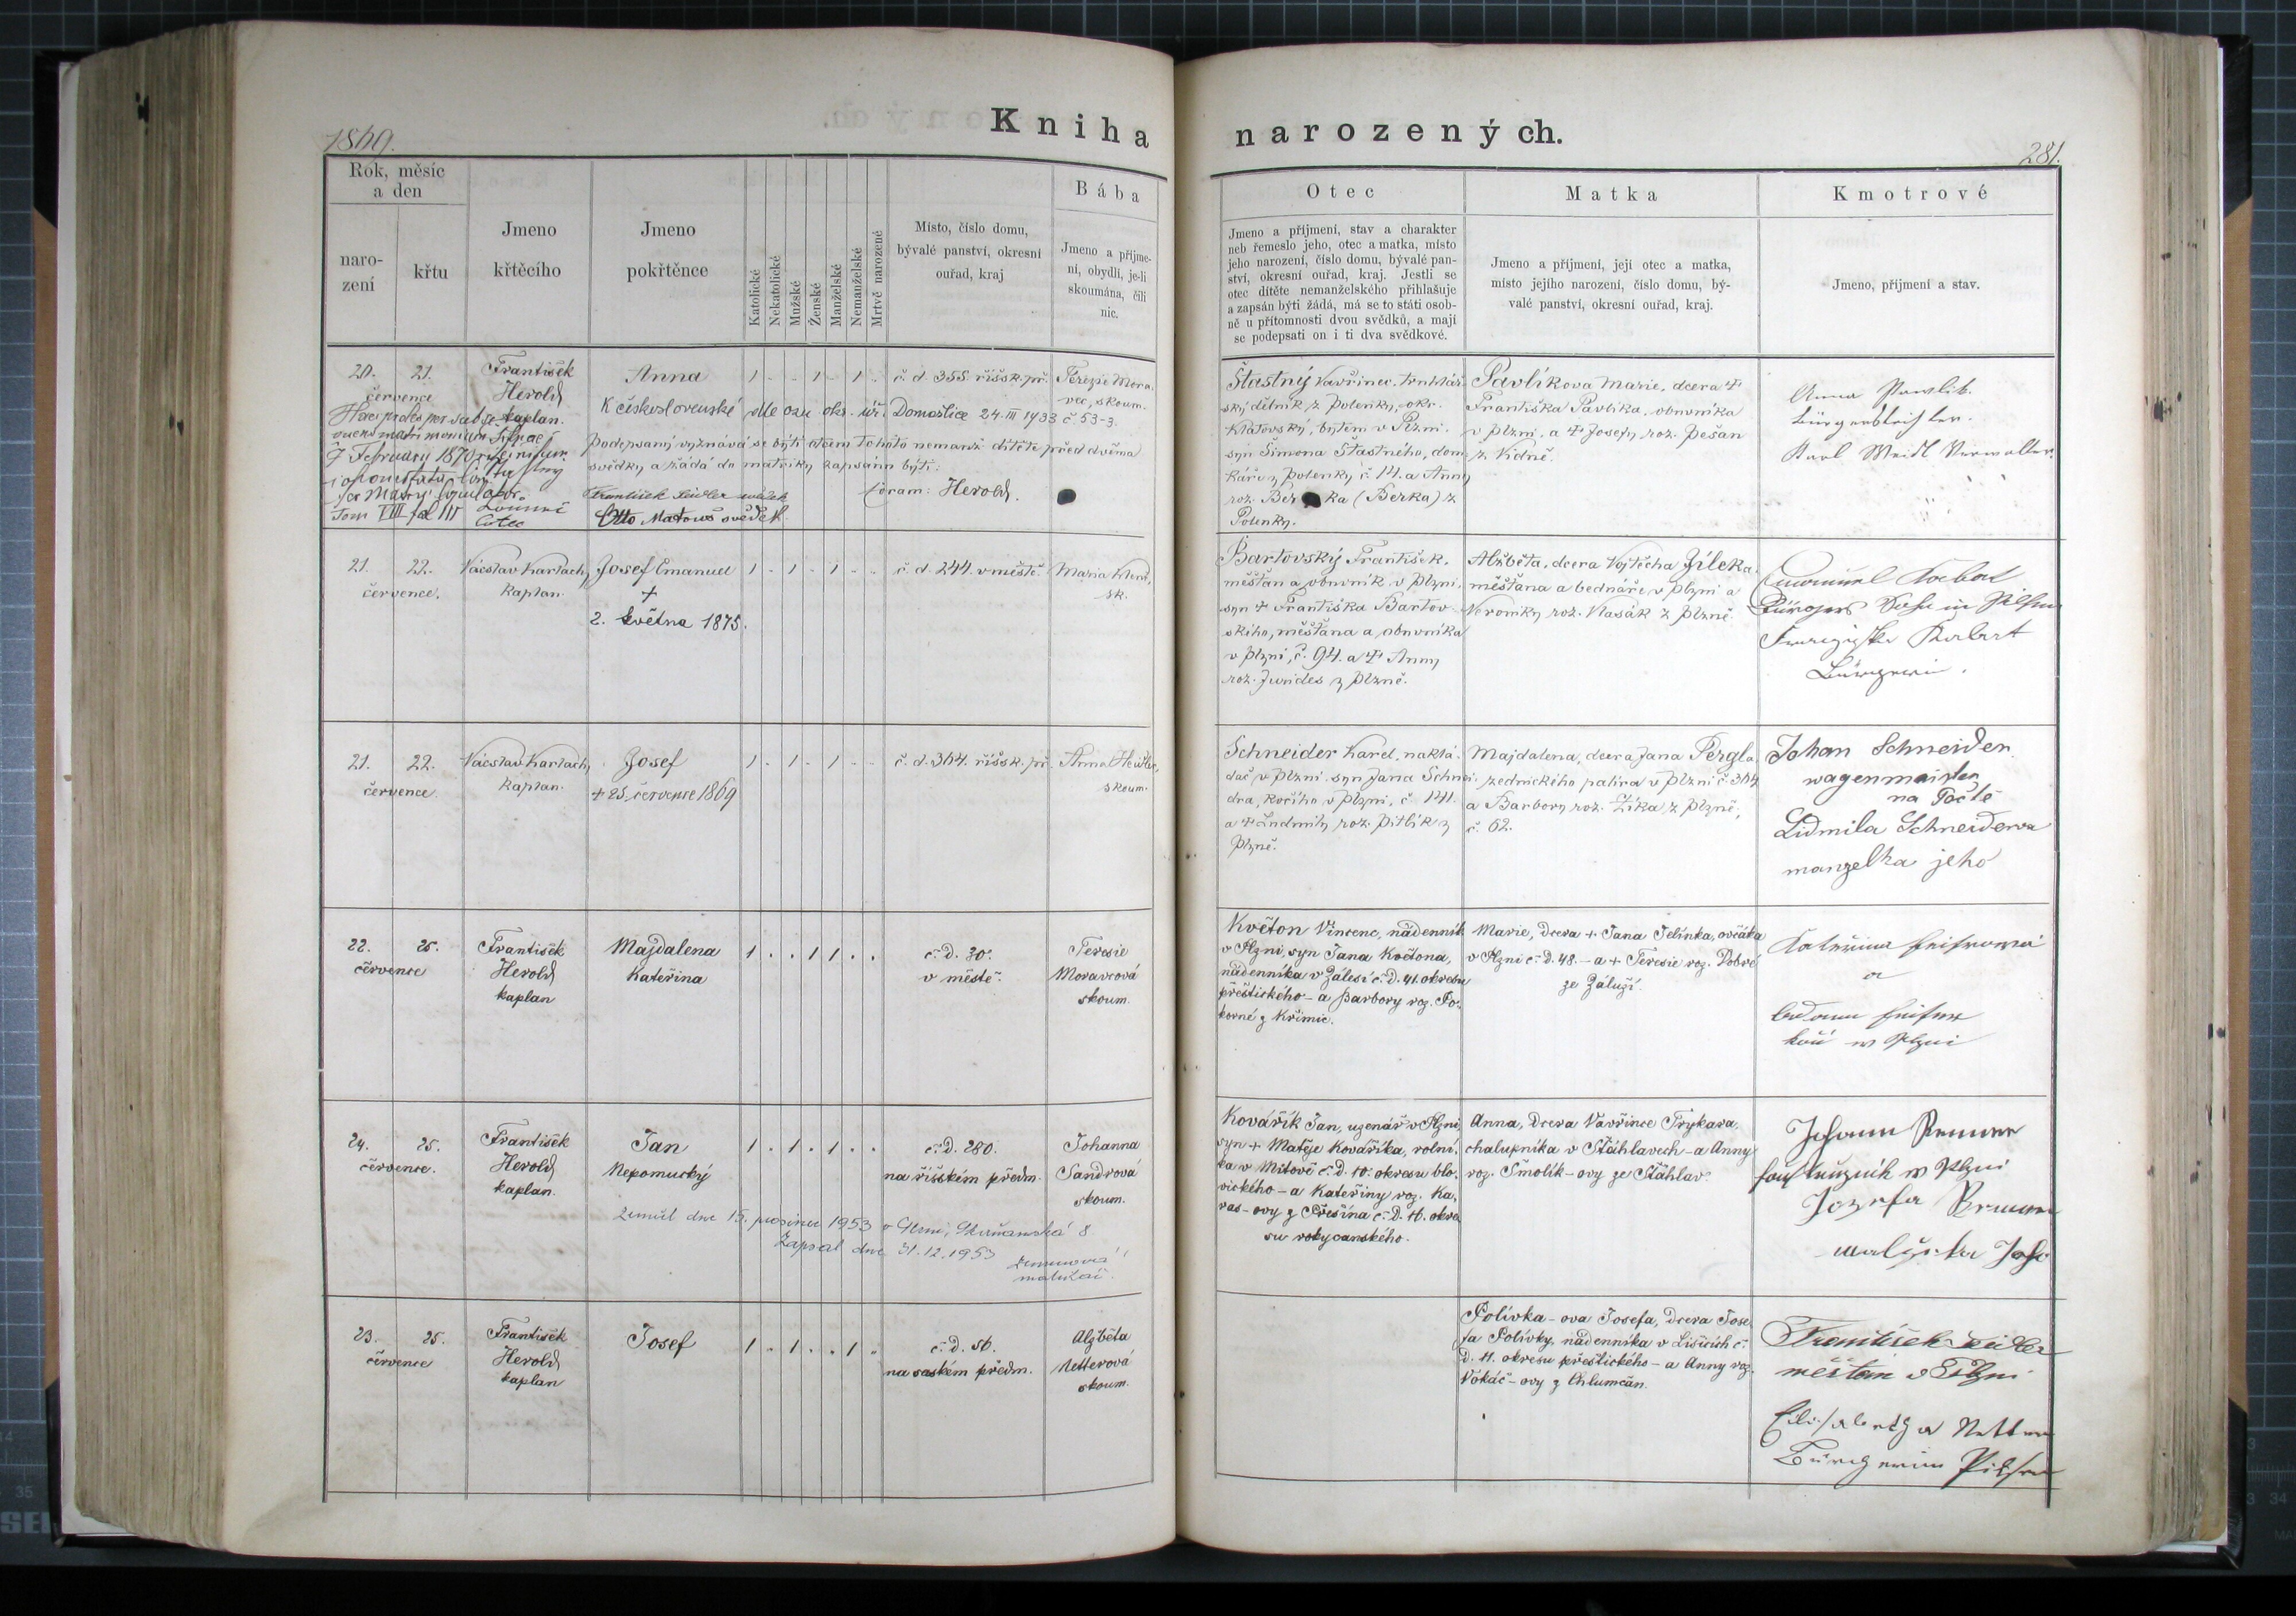 Kniha narozených.
1869.
281.
Rok, měsíc
a den
naro-
zení
křtu
Jmeno
křtěcího
Jmeno
pokřtěnce
Katolické
Nekatolické
Mužské
Ženské
Manželské
Nemanželské
Mrtvě narozené
Místo, číslo domu,
bývalé panství, okresní
ouřad, kraj
Bába
Jmeno a příjme-
ní, obydlí, je-li
skoumána, čili
nic.
Otec
Jmeno a příjmení, stav a charakter
neb řemeslo jeho, otec a matka, místo
jeho narození, číslo domu, bývalé pan-
ství, okresní ouřad, kraj. Jestli se
otec dítěte nemanželského přihlašuje
a zapsán býti žádá, má se to státi osob-
ně u přítomnosti dvou svědků, a mají
se podepsati on i ti dva svědkové.
Matka
Jmeno a příjmení, její otec a matka,
místo jejího narození, číslo domu, bý-
valé panství, okresní ouřad, kraj.
Kmotrové
Jmeno, příjmení a stav.
20. 21.
července
František
Herold
kaplan.
Anna
1 - - 1 - 1 .
č. d. 355. říšsk. př.
Terezie Mora-
vec, skoum.
K českoslovanské dle osv. okr. úř. Domažlice 24. III 1933 č 53-3.
podepsaný vyznává se býti otcem tohoto nemanž. dítěte před dvěma
svědky a žádá do matriky zapsánu býti:
František Seidler svědek
coram: Herold.
Otto Matouš svědek
Haec proles per subse-
quens matrimonium
7 February 1870
Tom VIII fol 111
Šťastný Vavřinec, truhlář-
ský dělník z Polenky, okr.
Klatovský, bytem v Plzni.
syn Šimona Šťastného, dom-
káře z Polenky č. 14. a Anny
roz. Ber ka (Berka) z
Polenky.
Pavlíkova Marie, dcera +
Františka Pavlíka, obuvníka
v Plzni, a + Josefy roz. Pešan
z Vídně.
Anna Pawlik
Bürgerstochter.
Karl Weidl Verwalter.
21. 22.
července.
Václav Karlach,
kaplan.
Josef Emanuel
+
2. května 1875.
1 - 1 - 1 - -
č. d. 244. v městě.
Maria
sk.
Bartovský František,
měšťan a obuvník v Plzni,
syn + Františka Bartov-
ského, měšťana a obuvníka
v Plzni, č. 94. a + Anny
roz. Jurides z Plzně.
Alžběta, dcera Vojtěcha Jílek a
měšťana a bednáře v Plzni a
Veroniky roz. Vlasák z Plzně.
Emanuel
Bürgers Sohn in Pilsen
Bürgerin.
21. 22.
července.
Václav Karlach,
kaplan.
Josef
+ 25. července 1869
1 - 1 - 1 - -
č. d. 364. říšsk. př.
Anna
skoum.
Schneider Karel, nakla-
dač v Plzni. syn Jana Schnei-
dra, kočího v Plzni, č. 141.
a + Ludmily roz. Pitlík z
Plzně.
Majdalena, dcera Jana Pergla
zednického palíra v Plzni č. 364
a Barbory roz. Zíka z Plzně,
č. 62.
Johan Schneider
wagenmaister
na Poctě
Lidmila Schneiderva
manzelka jeho
22. 25.
července
František
Herold
kaplan
Majdalena
Kateřina
1 . . 1 1 . .
č. D. 30.
v městě.
Teresie
Moravcová
skoum.
Květon Vincenc, nádenník
v Plzni, syn Jana Květona,
nádenníka v Zálesí č. D. 41. okresu
přeštického - a Barbory roz. Po-
korné z Křimic.
Marie, dcera + Jana Jelínka, ovčáka
v Plzni č. D. 48. - a + Teresie roz. Dobré
ze Záluží.
Kateřina
a
w Plzni
24. 25.
července.
František
Herold
kaplan.
Jan
Nepomucký
1 . 1 . 1 . .
č. D. 280.
na říšském předm.
Johanna
Sandrová
skoum.
Zemřel dne 15. prosince 1953 v Plzni, 8
Zapsal dne 31.12.1953
matrikář.
Kovářík Jan, uzenář v Plzni,
syn + Matěje Kováříka, rolní-
ka v Mítově č. D. 10. okresu blo-
vického - a Kateřiny roz. Ka-
ras-ovy z Přešína č. D. 16. okre-
su rokycanského.
Anna, dcera Vavřince Trykara,
chalupníka v Štáhlavech - a Anny
roz. Smolík-ovy ze Štáhlav.
Johann
w Plzni
Jozefa
23. 25.
července
František
Herold
kaplan
Josef
1 . 1 . . 1 .
č. D. 56.
na saském předm.
Alžběta
Netterová
skoum.
Polívka-ova Josefa, dcera Jose-
fa Polívky, nádenníka v Lišicích č.
D. 11. okresu přeštického - a Anny roz.
Vokáč-ovy z Chlumčan.
František Seidler
měšťan v Plzni
Elisabetha Netter
Bürgerin Pilsen